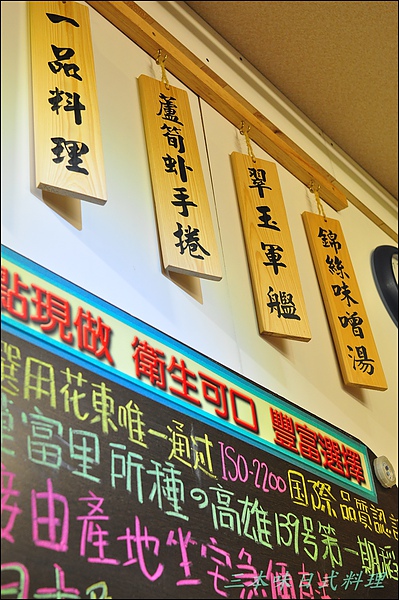 一品料理
蘆筍虾手捲
翠玉軍艦
錦絲味噌湯
點現做 衛生可口 豐富選擇
選用花東唯一通过ISO-2200国際品質認
富里所種の高雄139号第一期
接由產地坐宅急便
三本味日式料理